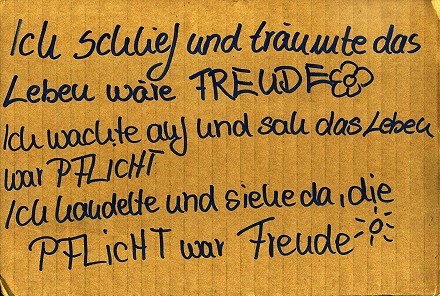 Ich schlief und träumte das
Leben wäre FREUDE
Ich wachte auf und sah das Leben
war PFLICHT
Ich handelte und siehe da, die
PFLiCHT war Freude